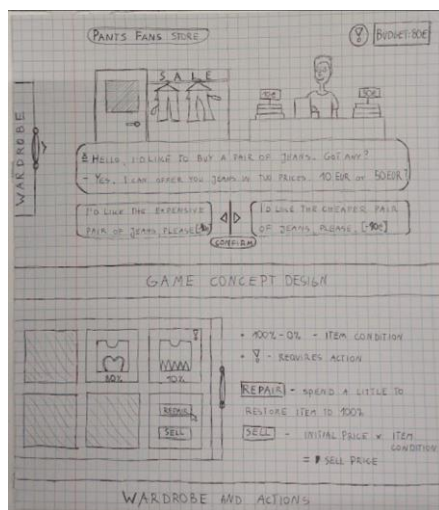 PANTS FANS STORE
BUDGET: 80€
SALE
10€
50€
WARDROBE
A HELLO, I'D LIKE TO BUY A PAIR OF JEANS. GOT ANY?
- YES. I CAN OFFER YOU JEANS IN TWO PRICES. 10 EUR OR 50 EUR!
I'D LIKE THE EXPENSIVE
PAIR OF JEANS, PLEASE
I'D LIKE THE CHEAPER PAIR
OF JEANS, PLEASE. [-10€]
CONFIRM
GAME CONCEPT DESIGN
80%
10%
REPAIR
SELL
• 100%-0% - ITEM CONDITION
• ! - REQUIRES ACTION
REPAIR - SPEND A LITTLE TO
RESTORE ITEM TO 100%
SELL - INITIAL PRICE × ITEM
CONDITION
= SELL PRICE
WARDROBE AND ACTIONS